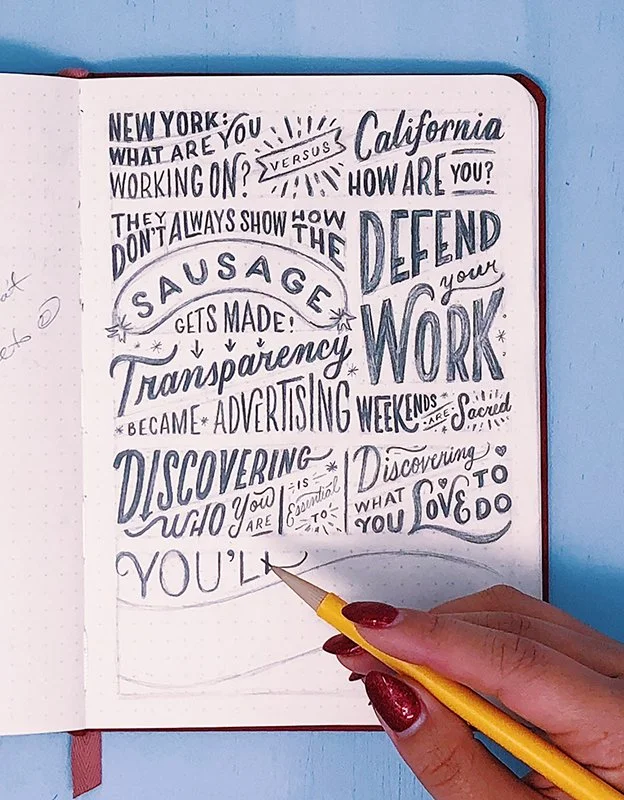 NEW YORK:
WHAT ARE YOU
WORKING ON?
VERSUS
California
HOW ARE YOU?
THEY DON'T ALWAYS SHOW HOW THE
SAUSAGE
GETS MADE!
Transparency
BECAME ADVERTISING
DEFEND
your
WORK
WEEKENDS ARE Sacred
DISCOVERING
WHO You ARE
IS
Essential
TO
Discovering
WHAT YOU LOVE TO DO
YOU'LL